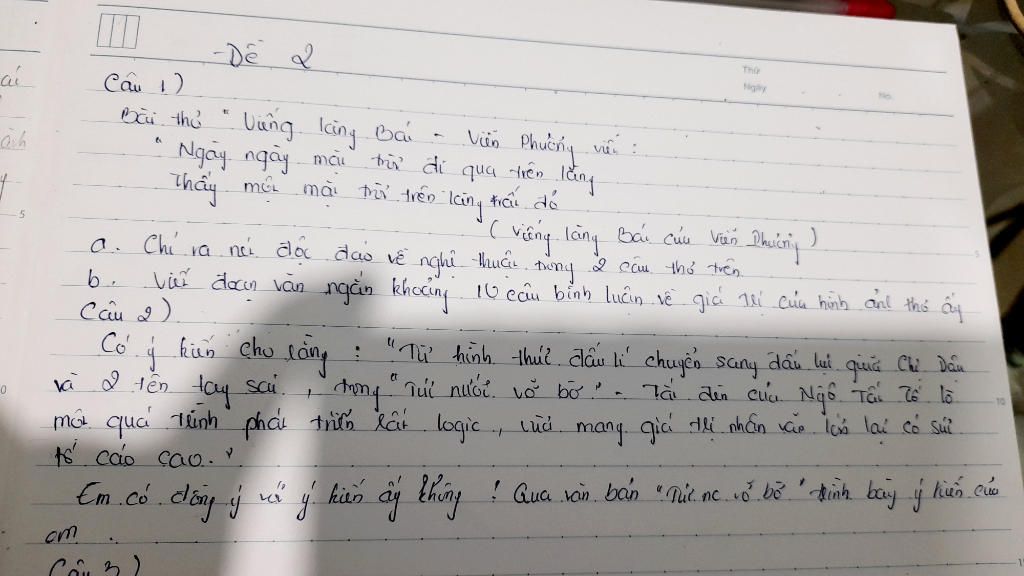 Thứ
Ngày No.
- Đề 2
Câu 1)
Bài thơ "Viếng lăng Bác - Viễn Phương viết :
"Ngày ngày mặt trời đi qua trên lăng
Thấy một mặt trời trên lăng rất đỏ
( Viếng lăng Bác của Viễn Phương )
a. Chỉ ra nét độc đáo về nghệ thuật trong 2 câu thơ trên
b. Viết đoạn văn ngắn khoảng 10 câu bình luận về giá trị của hình ảnh thơ ấy
Câu 2)
Có ý kiến cho rằng : "Từ hình thức đấu lí chuyển sang đấu lực giữa Chị Dậu
và 2 tên tay sai, trong "Tức nước vỡ bờ" - Tắt đèn của Ngô Tất Tố là
một quá trình phát triển rất logic, vừa mang giá trị nhân văn lại có sức
tố cáo cao."
Em có đồng ý với ý kiến ấy không ! Qua văn bản "Tức nc vỡ bờ" trình bày ý kiến của
em.
Câu 3)